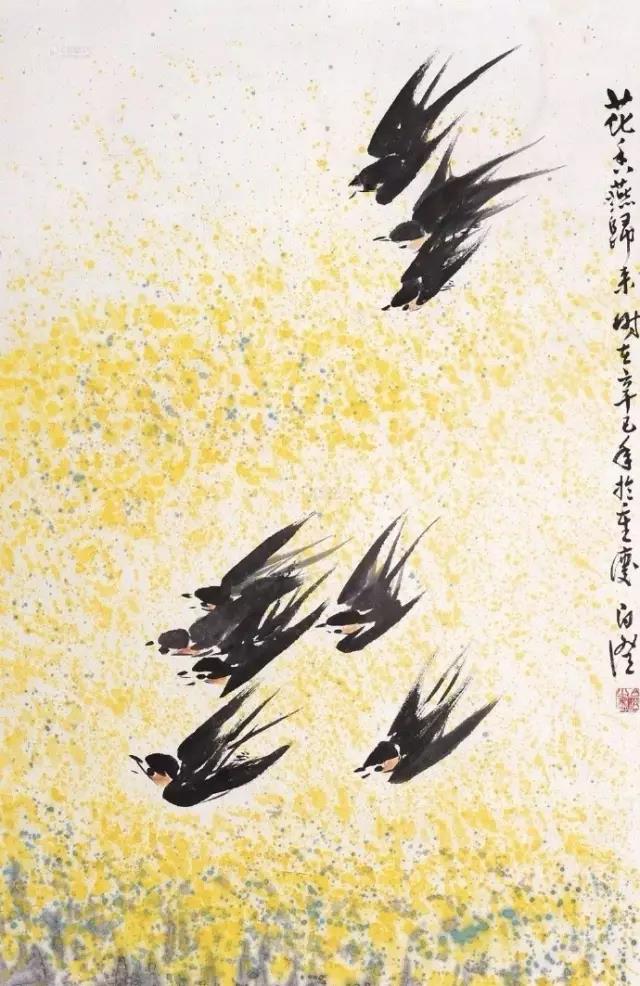 花香燕歸来 时在辛巳年於重慶 白澄